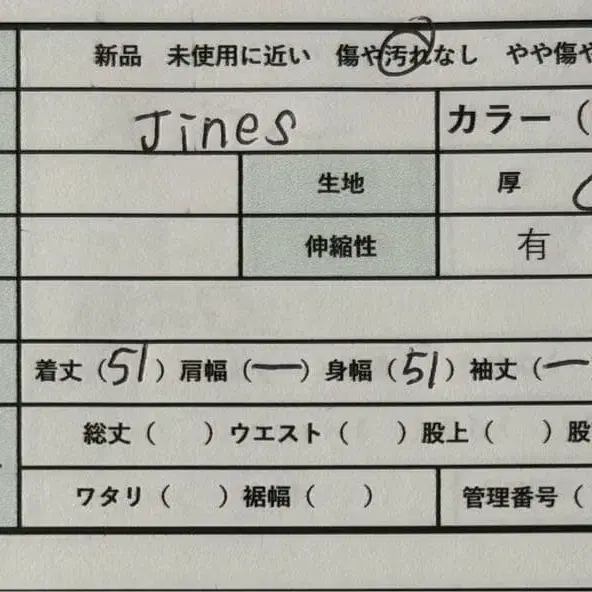 新品 未使用に近い 傷や汚れなし やや傷や
Jines カラー（
生地 厚
伸縮性 有
着丈（51）肩幅（ー）身幅（51）袖丈（ー
総丈（ ）ウエスト（ ）股上（ ）股
ワタリ（ ）裾幅（ ） 管理番号（